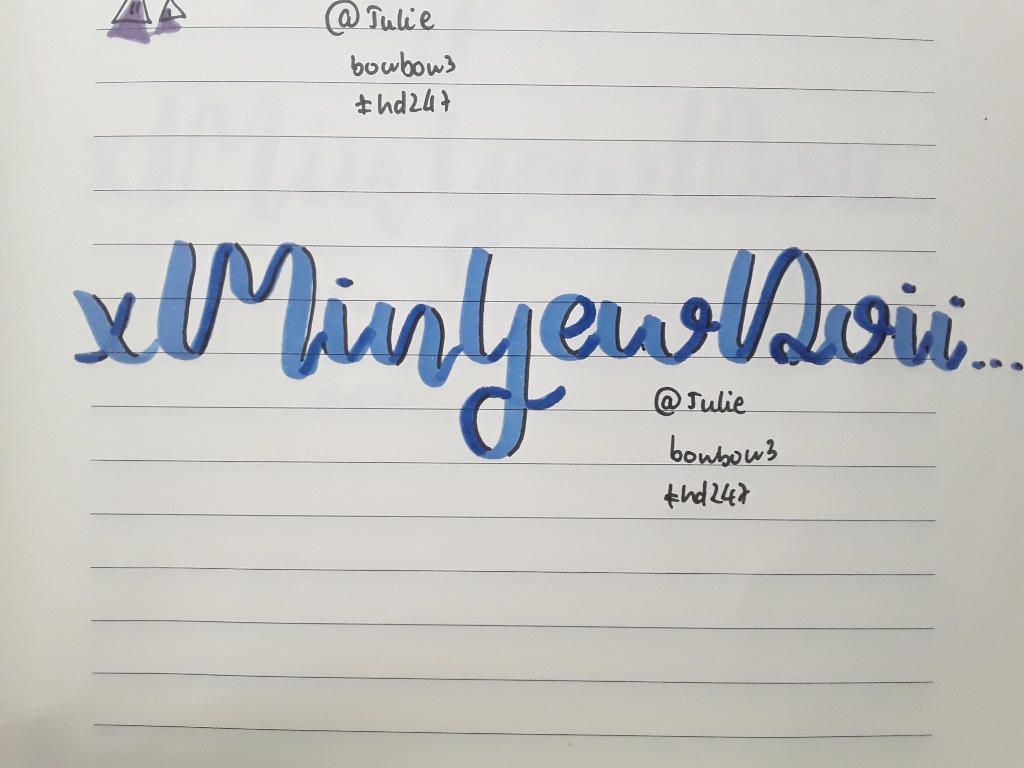 @Julie
bowbow3
#hd247
xMinYewDoii...
@Julie
bowbow3
#hd247